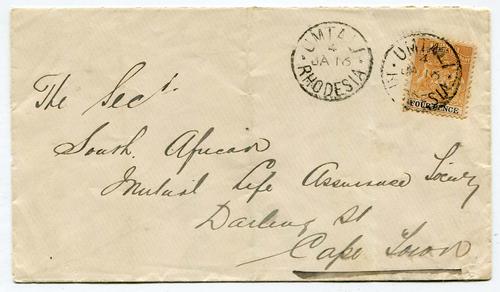 UMTALI
4
JA 16
RHODESIA
UMTALI
4
JA 16
RHODESIA
FOURPENCE
The Secy.
South African
Mutual Life Assurance Society
Darling St
Cape Town